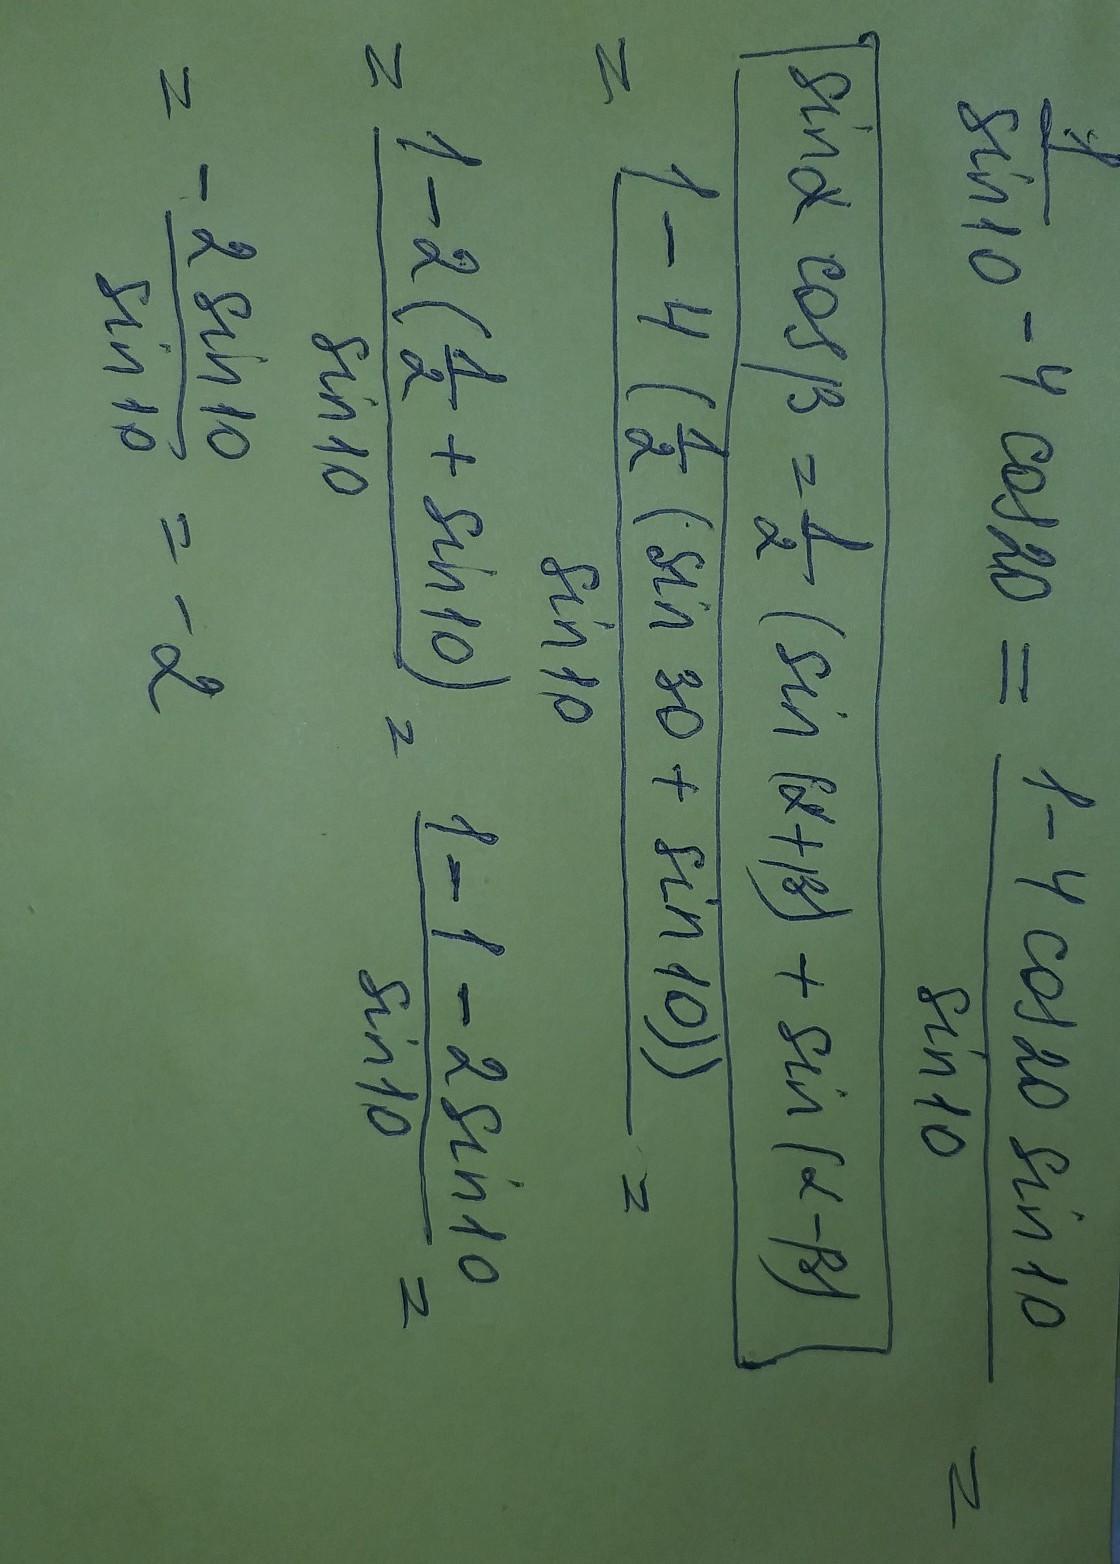 1/sin10 - 4 cos20 = (1 - 4 cos20 sin10)/sin10 =
sinα cosβ = 1/2 (sin (α+β) + sin (α-β))
= (1 - 4 (1/2 (sin 30 + sin 10)))/sin10 =
= (1 - 2 (1/2 + sin 10))/sin10 = (1 - 1 - 2 sin10)/sin10 =
= - 2 sin10/sin10 = - 2